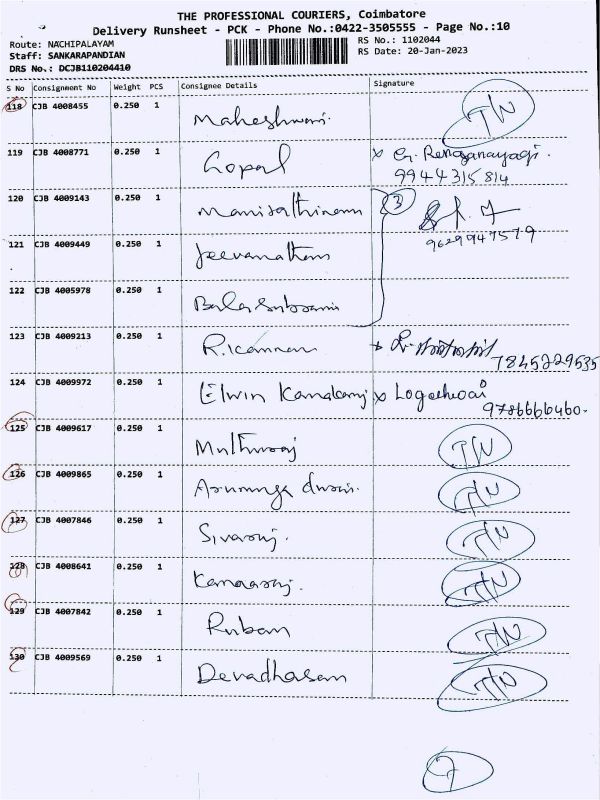 THE PROFESSIONAL COURIERS, Coimbatore
Delivery Runsheet - PCK - Phone No.:0422-3505555 - Page No.:10
Route: NACHIPALAYAM
RS No.: 1102044
Staff: SANKARAPANDIAN
RS Date: 20-Jan-2023
DRS No.: DCJB110204410
S No Consignment No Weight PCS Consignee Details Signature
118 CJB 4008455 0.250 1 Maheshwari. T/N
119 CJB 4008771 0.250 1 Gopal x G. Renganayagi.
9944315814
120 CJB 4009143 0.250 1 Manirathinam 3
9629947579
121 CJB 4009449 0.250 1 Jeevanatham
122 CJB 4005978 0.250 1 Balasubramani
123 CJB 4009213 0.250 1 R.kannan
7845229535
124 CJB 4009972 0.250 1 Elwin Kamalanj x Logeshwari
9786666460.
125 CJB 4009617 0.250 1 Muthuraj T/N
126 CJB 4009865 0.250 1 Arumuga durai. T/N
127 CJB 4007846 0.250 1 Sivaraj. T/N
128 CJB 4008641 0.250 1 Kamaraj. T/N
129 CJB 4007842 0.250 1 Ruban T/N
130 CJB 4009569 0.250 1 Devadhasan T/N
7